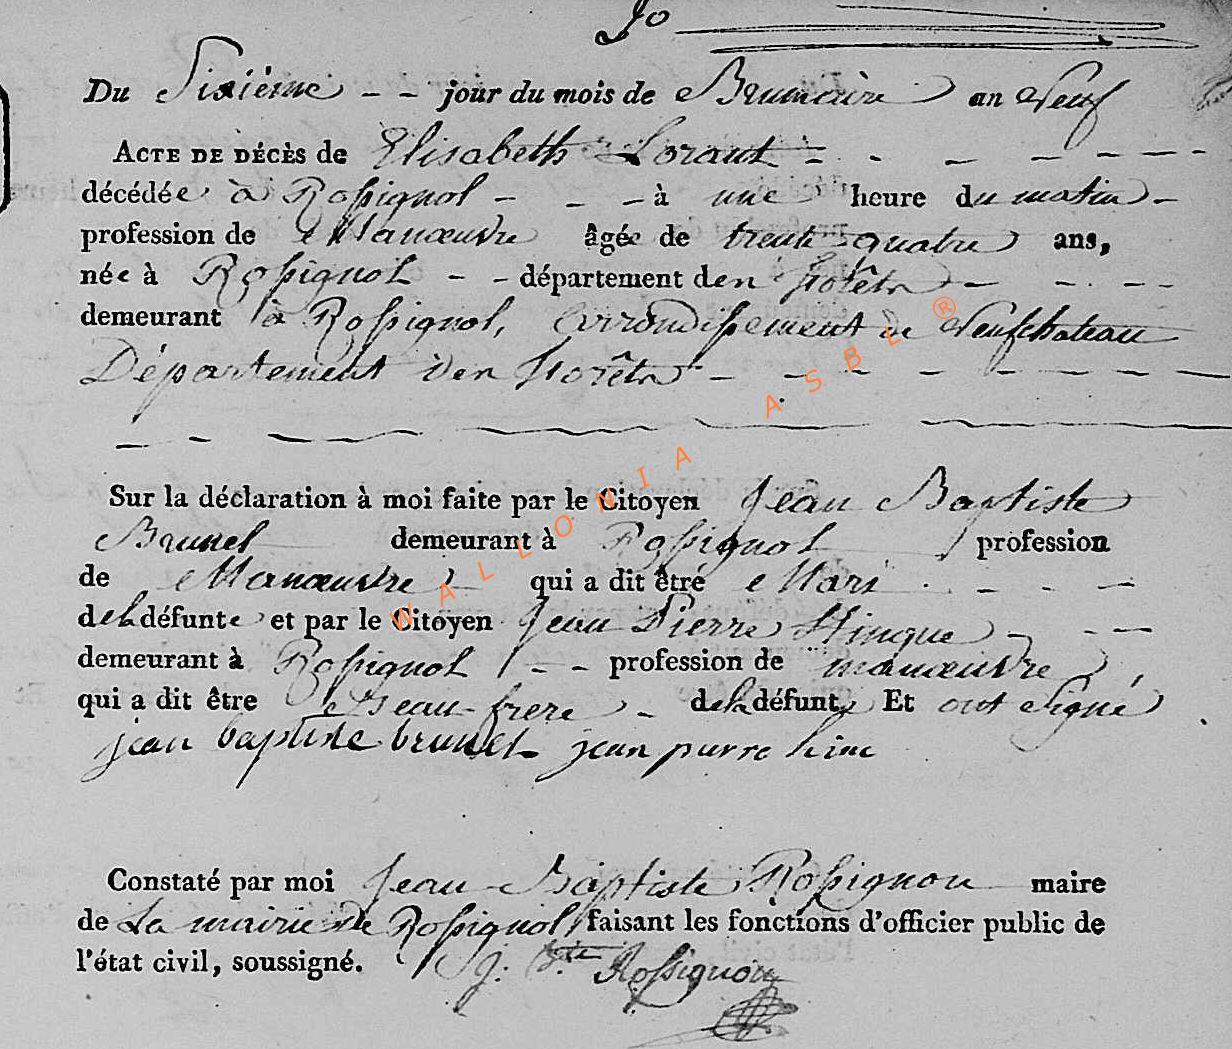 Du Sixième - - jour du mois de Brumaire an Neuf
ACTE DE DÉCÈS de Elisabeth Lorant - - - - - - -
décédée à Rossignol - - - à une heure du matin -
profession de Manœuvre âgée de trente quatre ans,
née à Rossignol - - département des Forêts - - - -
demeurant à Rossignol, Arrondissement de Neufchateau
Département des Forêts - - - - - - - -
Sur la déclaration à moi faite par le Citoyen Jean Baptiste
Brunel demeurant à Rossignol profession
de Manœuvre qui a dit être Mari - - - -
de la défunte et par le Citoyen Jean Pierre Hinque - - -
demeurant à Rossignol - - profession de manœuvre,
qui a dit être Beau-frere - de la défunte Et ont Signé
jean baptiste brunel jean pierre hinc
Constaté par moi Jean Baptiste Rossignon maire
de La mairie de Rossignol faisant les fonctions d'officier public de
l'état civil, soussigné. J. Bte Rossignon
WALLONIA ASBL ®